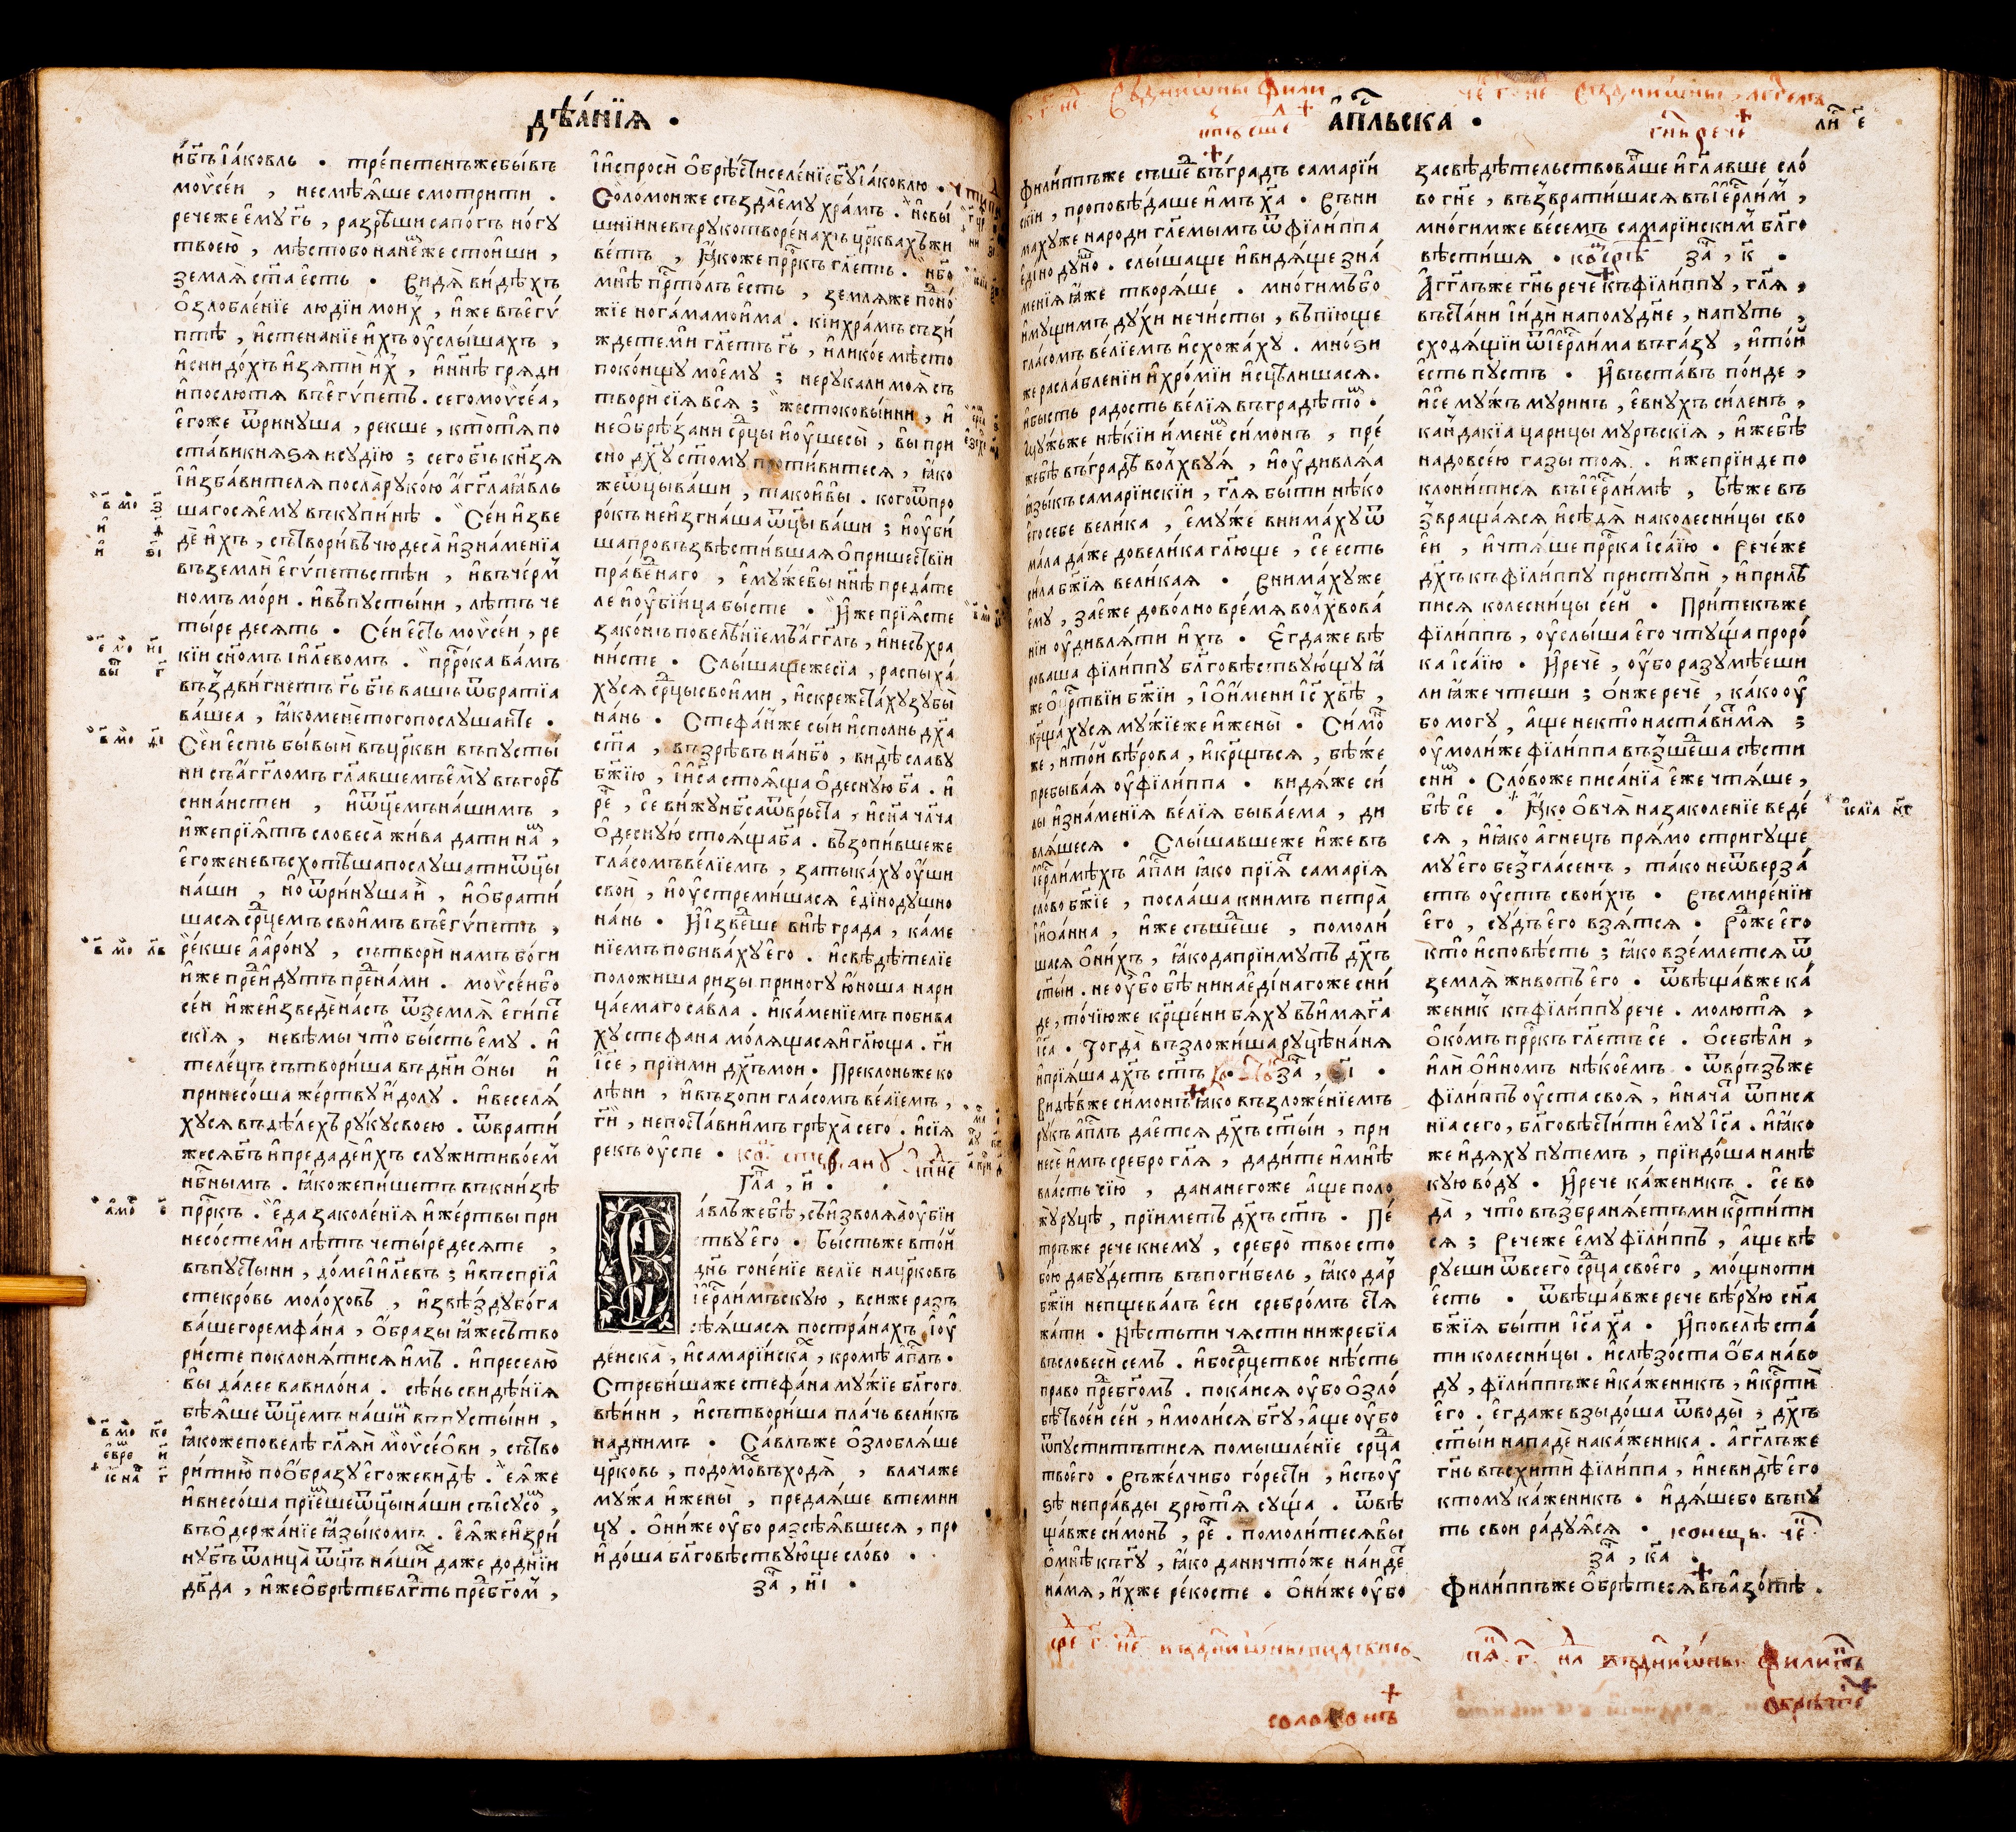 дѣа́нїѧ •
и҆бг҃ъ і҆а́ковль • тре́петенъжебы́въ
моѵсе́и , несмѣѧ́ше смотрити .
речеже є҆му гь҃ , разрѣши сапо́гъ но́гу
твоею̀ , мѣстобо нане́мже стои́ши ,
землѧ̀ ст҃а є҆сть • видѧ̀ ви́дѣхъ
ѻ҆злобле́нїе люді́и мои́х , и҆же въегѵ́
птѣ , и҆стена́нїе и҆́хъ оу҆слы́шахъ ,
и҆снидо́хъ и҆зѧти и҆̀х , и҆нн҃ѣ грѧди
и҆послютѧ въегѵ́петъ . сегомоѵсе́а ,
є҆гоже ѿри́нуша , рекше , кто́тѧ по
ста́ви кнѧѕѧ и҆судїю̀ ; сего бг҃ъ кнѧ́зѧ
и҆и҆зба́вителѧ посла̀ руко́ю а҆́гг҃ла ꙗ҆́вль
шагосѧ є҆му въкупинѣ̀ • Се́и и҆зве
дѐ и҆́хъ , сътвори́въ чюдеса̀ и҆зна́менїа
въземлѝ є҆гѵ́петьстѣи , и҆въче́рм
номъ мо́ри . и҆въпусты́ни , лѣ́тъ че
ты́ре десѧть • Се́и є҆сть моѵсе́и , ре
кїи сн҃омъ і҆и҃левомъ . прⷪ҇рока ва́мъ
въздви́гнетъ гь҃ бг҃ъ вашъ ѿбра́тїа
ва́шеа , ꙗ҆коменѐ тогопослушаите •
Се́и є҆сть бы́выи въцр҃кви въпусты́
ни съа҆́гг҃ломъ гл҃авшемъ є҆му въгорѣ̀
сина́истеи , и҆ѿц҃е́мъ на́шимъ ,
и҆́жепрїѧ́тъ словеса̀ жи́ва дати на́м ,
є҆гоже невъсхотѣша послушати ѿц҃ы
на́ши , но ѿри́нуша и҆̀ , и҆ѻ҆брати́
шасѧ срⷣцемъ свои́мъ въегѵ́петъ ,
ре́кше а҆аро́ну , сътворѝ намъ бо́ги
и҆же преⷣи́дутъ преⷣна́ми . моѵсе́ибо
се́и и҆же и҆зведѐ насъ ѿземлѧ̀ є҆ги́петъ
скїѧ , невѣ́мы что̀ бы́сть є҆му . и҆
теле́цъ сътвори́ша въдни҃ ѻ҆́ны и҆
принесо́ша же́ртву и҆́долу . и҆веселѧ́
хусѧ въдѣлехъ руку своею . ѿврати́
жесѧ бг҃ъ и҆предадѐ и҆́хъ служити во́ем
нб҃нымъ . ꙗ҆кожепи́шетъ въкни́зѣ
прⷪ҇ркъ . є҆да закале́нїѧ и҆же́ртвы при
несо́сте ми лѣтъ четы́редесѧте ,
въпусты́ни , до́ме і҆и҃левъ ; и҆въспрїѧ́
сте кро́въ моло́ховъ , и҆звѣзду бо́га
ва́шего ремфа́на , ѻ҆́бразы ꙗ҆́же сътво
ри́сте поклонѧ́тисѧ и҆́мъ . и҆преселю̀
вы да́лее вавило́на . сѣ́нь свидѣ́нїѧ
бѣѧ́ше ѿц҃емъ на́шим въпусты́ни ,
ꙗ҆кожеповелѣ̀ гл҃ѧи моѵсе́ѻви , сътво
ри́ти ю̀ поѻ҆́бразу є҆гоже ви́дѣ . є҆ѧ́же
и҆внесо́ша прїе́мше ѿц҃ы на́ши съі҆сусо́м ,
въѻ҆держа́нїе ꙗ҆зы́комъ . є҆ѧ́же и҆зри́
ну бг҃ъ ѿлица̀ ѿц҃ъ на́ших даже додн҃їи
дв҃да , и҆́же ѻ҆брѣ́те блг҃ть преⷣбг҃о́м ,
і҆и҆спросѝ ѻ҆брѣ́сти селе́нїе бг҃у і҆а́ковлю •
Соломо́нже създа̀ є҆му хра́мъ . но вы́
шнїи невърукотворе́нахъ цр҃квахъ жи
ве́тъ , ꙗ҆́коже прⷪ҇ркъ гл҃етъ . нб҃о
мнѣ̀ прⷭ҇то́лъ є҆сть , землѧ́же подно́
жїе нога́ма мои́ма . кі́и хра́мъ съзи́
ждете мѝ гл҃етъ гь҃ , и҆ли ко́е мѣсто
поко́ищу мо́ему ; нерукалимоѧ̀ съ
творѝ сїѧ̀ всѧ̀ ; жестоковы́инїи , и҆
неѻ҆брѣзани срⷣцы и҆оу҆шесы̀ , вы̀ при
сно дх҃у ст҃ому проти́витесѧ , ꙗ҆́ко
жеѿц҃ы ва́ши , та́ко и҆вы̀ . кого ѿпро
ро́къ неи҆згна́ша ѿц҃ы ва́ши ; и҆оу҆би́
ша провъзвѣсти́вшаѧ ѻ҆прише́ствїи
пра́веⷣнаго , є҆му́же вы нн҃ѣ преда́те
ле и҆оу҆бі́ица бы́сте • И҆́же прїѧ́сте
зако́нъ повелѣ́нїемъ а҆́гг҃лъ , и҆несъхра
ни́сте • Слы́шащежесїа , распыха́
хусѧ срⷣцы свои́ми , и҆скрежета́ху зубы̀
на́нь • Стефа́нже сы́и и҆спо́лнь дх҃а
ст҃а , възрѣ́въ нанб҃о , ви́дѣ сла́ву
бж҃їю , і҆і҆с҃а стоѧ́ща ѻ҆десную бг҃а . и҆
ре҃ , се вижу нб҃са ѿвръста , и҆сн҃а чл҃ча
ѻ҆десную̀ стоѧ́ща бг҃а . възопи́вшеже
гла́сомъ ве́лїемъ , затыка́ху оу҆́ши
своѝ , и҆оу҆стреми́шасѧ є҆дінодушно
на́нь • И҆и҆зве́дше внѣ̀ гра́да , ка́ме
нїемъ побива́ху є҆го . и҆свѣдѣ́телїе
положи́ша ри́зы приногу ю҆́ноша нари
ца́емаго са́вла . и҆ка́менїемъ побива́
ху стефа́на мо́лѧщасѧ и҆гл҃юща . гп҃и
і҆с҃е , прїими дх҃ъ мо́и . Прекло́ньже ко
лѣ́ни , и҆възопѝ гла́сомъ ве́лїемъ ,
гп҃и , непоста́ви и҆́мъ грѣха̀ сего . и҆сїѧ̀
ре́къ оу҆́спе • ко҃ стефану
гл҃а , и҃ .
Са́влъжебѣ̀ , съизволѧ́ѧ оу҆бі́и
ству є҆го • бы́стьже вто́и
дн҃ь гоне́нїе ве́лїе нацр҃ковь
і҆ерⷭ҇ли́мъскую , вси́же разъ
сѣѧ́шасѧ постра́нахъ і҆оу҆
де́иска , и҆самарі́иска , кромѣ а҆пⷭ҇лъ .
Спребѝшаже стефа́на му́жїе бл҃гого
вѣ́инїи , и҆сътвори́ша пла́чь вели́къ
надни́мъ • Са́влъже ѻ҆злоблѧ́ше
цр҃ковь , подомо́въхо́дѧ , влача́же
му́жа и҆жены̀ , предаѧ́ше втемни
цу . ѻ҆ни́же оу҆́бо разсѣѧ́вшесѧ , про
и҆до́ша бл҃говѣству́юще сло́во •
за҃ , и҃і •
а҆пⷭ҇льска •
гн҃ь рече
ли҃ е҃
Фили́ппъже съше́дъ въгра́дъ самарі́и
скїи , проповѣ́даше и҆́мъ хс҃а • внн
ма́хуже наро́ди гл҃емымъ ѿфілі́ппа
є҆діноду́шно . слы́шаще и҆ви́дѧще зна́
менїѧ ꙗ҆́же творѧ́ше . мно́гимъбо
и҆му́щимъ ду́хи нечи́сты , въпїю́ще
гла́сомъ ве́лїемъ и҆схожа́ху . мно́ѕи
же расла́бленїи и҆хро́мїи и҆сцѣ́лишасѧ .
и҆бы́сть ра́дость ве́лїѧ въгра́дѣ то́м .
Му́жже нѣ́кїи и҆́менем си́монъ , пре́
жебѣ̀ въгра́дѣ волхвуѧ̀ , и҆оу҆дивлѧ́ѧ
ꙗ҆зы́къ самарі́искїи , гл҃ѧ бы́ти нѣ́ко
его себе вели́ка , є҆му́же внима́ху ѿ
ма́ла да́же довели́ка гл҃юще , се́ есть
си́ла бж҃їѧ вели́каѧ • внима́хуже
є҆му , зане́же дово́лно вре́мѧ волхвова́
нїи оу҆дивлѧ́ти и҆́хъ • є҆гда́же вѣ́
роваша філі́ппу бл҃говѣству́ющу ꙗ҆́
же ѻ҆црⷭ҇твїи бж҃їи , і҆ѻ҆и҆́мени і҆с҃ хв҃ѣ ,
крⷭ҇ща́хусѧ му́жїеже и҆жены̀ • Си́мон
же , и҆то́и вѣ́рова , и҆крⷭ҇щьсѧ , бѣ́же
пребыва́ѧ оу҆філі́ппа • ви́дѧже си́
лы и҆зна́менїѧ ве́лїѧ быва́ема , ди
влѧ́шесѧ • Слы́шавшеже и҆́же въ
і҆ерⷭ҇ли́мѣхъ а҆пⷭ҇ли ꙗ҆́ко прїѧ́тъ самарі́ѧ
сло́во бж҃їе , посла́ша кни́мъ петра̀
і҆и҆ѻа́нна , и҆́же съше́дше , помоли́
шасѧ ѻ҆ни́хъ , ꙗ҆́ко да прїи́мутъ дх҃ъ
ст҃ы́и . не оу҆́бо бѣ ни на є҆ді́наго же сни́
де , то́чїюже крⷭ҇ще́ни бѧ́ху въи́мѧ га
і҆с҃а . Тогда̀ възложи́ша ру́цѣ на́нѧ
и҆прїѧ́ша дх҃ъ ст҃ъ • за҃ ,
Ви́дѣвже си́монъ ꙗ҆ко възложе́нїемъ
ру́къ а҆пⷭ҇лъ дае́тсѧ дх҃ъ ст҃ы́и , при
несѐ и҆́мъ сребро̀ гл҃ѧ , дади́те и҆мнѣ
вла́сть сїю , да нанего́же а҆́ще поло
жу́ ру́цѣ , прїи́метъ дх҃ъ ст҃ъ • Пе́
тръже рече кнему , сребро̀ твое съто
бо́ю да бу́детъ въпоги́бель , ꙗ҆́ко да́р
бж҃їи непщева́лъ є҆си сребро́мъ стѧ
жа́ти • нѣ́стьти ча́сти ни жре́бїа
въсловеси́ се́мъ . и҆бо срⷣце твое нѣ́сть
право преⷣбг҃омъ . пока́исѧ оу҆́бо ѻ҆зло́
бѣ твое́и се́и , и҆моли́сѧ бг҃у , а҆́ще оу҆́бо
ѿпу́стиътисѧ помышле́нїе срⷣца
твоего . въже́лчибо го́рести , и҆съоу҆
ѕѣ̀ непра́вды зрю́ тѧ су́ща . ѿвѣ́
ща́вже си́монъ , ре҃ . помоли́тесѧ вы̀
ѻ҆мнѣ̀ къ гу҃ , ꙗ҆́ко да ничто́же на́иде
на́мѧ , и҆́хже реко́сте . ѻ҆ни́же оу҆́бо
засвѣдѣ́тельствова́вше и҆гл҃авше сло́
во гн҃е , възврати́шасѧ въі҆ерⷭ҇ли́м ,
мно́гимже ве́семъ самарі́искым бл҃го
вѣсти́ша • за҃ , к҃ •
А҆́гг҃лъже гн҃ь рече къ філі́ппу , гл҃ѧ ,
въста́ни і҆и҆дѝ напо́лудне , на пу́ть ,
сходѧ́щїи ѿі҆ерⷭ҇ли́ма въга́зу , и҆то́и
є҆сть пу́стъ • И҆въста́въ по́иде ,
и҆се му́жъ му́ринъ , є҆вну́хъ си́ленъ ,
канда́кїа цари́цы му́ръскїѧ , и҆́жебѣ
надовсе́ю га́зы тоѧ̀ . и҆́жепрїи́де по
клони́тисѧ въі҆ерⷭ҇ли́мѣ , бѣ́же въ
звраща́ѧсѧ и҆сѣдѧ̀ наколесни́цы сво
е́и , и҆чтѧ́ше прⷪ҇рка і҆са́їю • рече́же
дх҃ъ къ філі́ппу приступѝ , и҆прилѣ
писѧ колесни́цы се́и • При́текъже
філі́ппъ , оу҆слы́ша є҆го чту́ща проро́
ка і҆са́їю • И҆речѐ , оу҆́бо разумѣ́еши
ли ꙗ҆́же чте́ши ; ѻ҆́нже речѐ , ка́ко оу҆́
бо могу , а҆́ще некто̀ наста́витмѧ ;
оу҆моли́же філі́ппа възше́дша сѣсти
сни́м • Сло́воже писа́нїа є҆́же чтѧ́ше ,
бѣ̀ се • Ꙗ҆́ко ѻ҆вча̀ назаколе́нїе веде́
сѧ , и҆ꙗ҆́ко а҆́гнецъ прѧ́мо стригуще
му є҆го безгла́сенъ , та́ко неѿверза́
етъ оу҆́стъ свои́хъ • въсмире́нїи
є҆го , су́дъ є҆го взѧ́тсѧ • ро́дже є҆го
кто̀ и҆сповѣ́сть ; ꙗ҆́ко взе́млетсѧ ѿ
землѧ̀ живо́тъ є҆го • ѿвѣща́вже ка́
женик къ філі́ппу рече . молю́тѧ ,
ѻ҆ко́мъ прⷪ҇ркъ гл҃етъ се . ѻ҆себѣ ли ,
и҆лѝ ѻ҆и҆но́мъ нѣ́коемъ • ѿвръзъже
філі́ппъ оу҆ста своѧ̀ , и҆нача́тъ ѿписа
нїа сего , бл҃говѣсти́ти є҆му і҆с҃а . и҆ꙗ҆́ко
же и҆дѧ́ху путе́мъ , прїидо́ша на нѣ́
кую во́ду • И҆рече ка́женикъ . се во
да̀ , что̀ възбранѧ́етъ ми крⷭ҇ти́ти
сѧ ; Рече́же є҆му філі́ппъ , а҆́ще вѣ́
руеши ѿвсего̀ срⷣца своего , мо́щноти
є҆сть • ѿвѣща́вже рече вѣ́рую сн҃а
бж҃їѧ бы́ти і҆с҃а хс҃а • И҆повелѣ̀ ста́
ти колесни́цы . и҆слѣзо́ста ѻ҆́ба на во́
ду , філі́ппъже и҆ка́женикъ , и҆крⷭ҇тѝ
є҆го . є҆гда́же взыдо́ша ѿводы̀ , дх҃ъ
ст҃ы́и нападѐ нака́женика . а҆́гг҃лъже
гн҃ь въсхи́ти філі́ппа , и҆неви́дѣ є҆го
ктому ка́женикъ . и҆дѧ́шебо въпу́
ть сво́и ра́дуѧсѧ • конецъ че҃
за҃ , ка҃ •
Фили́ппъже ѻ҆брѣ́тесѧ въа҆зо́тѣ .
і҆са́їа нг҃
соломонъ
Филипъ
обрѣтеⷭ҇